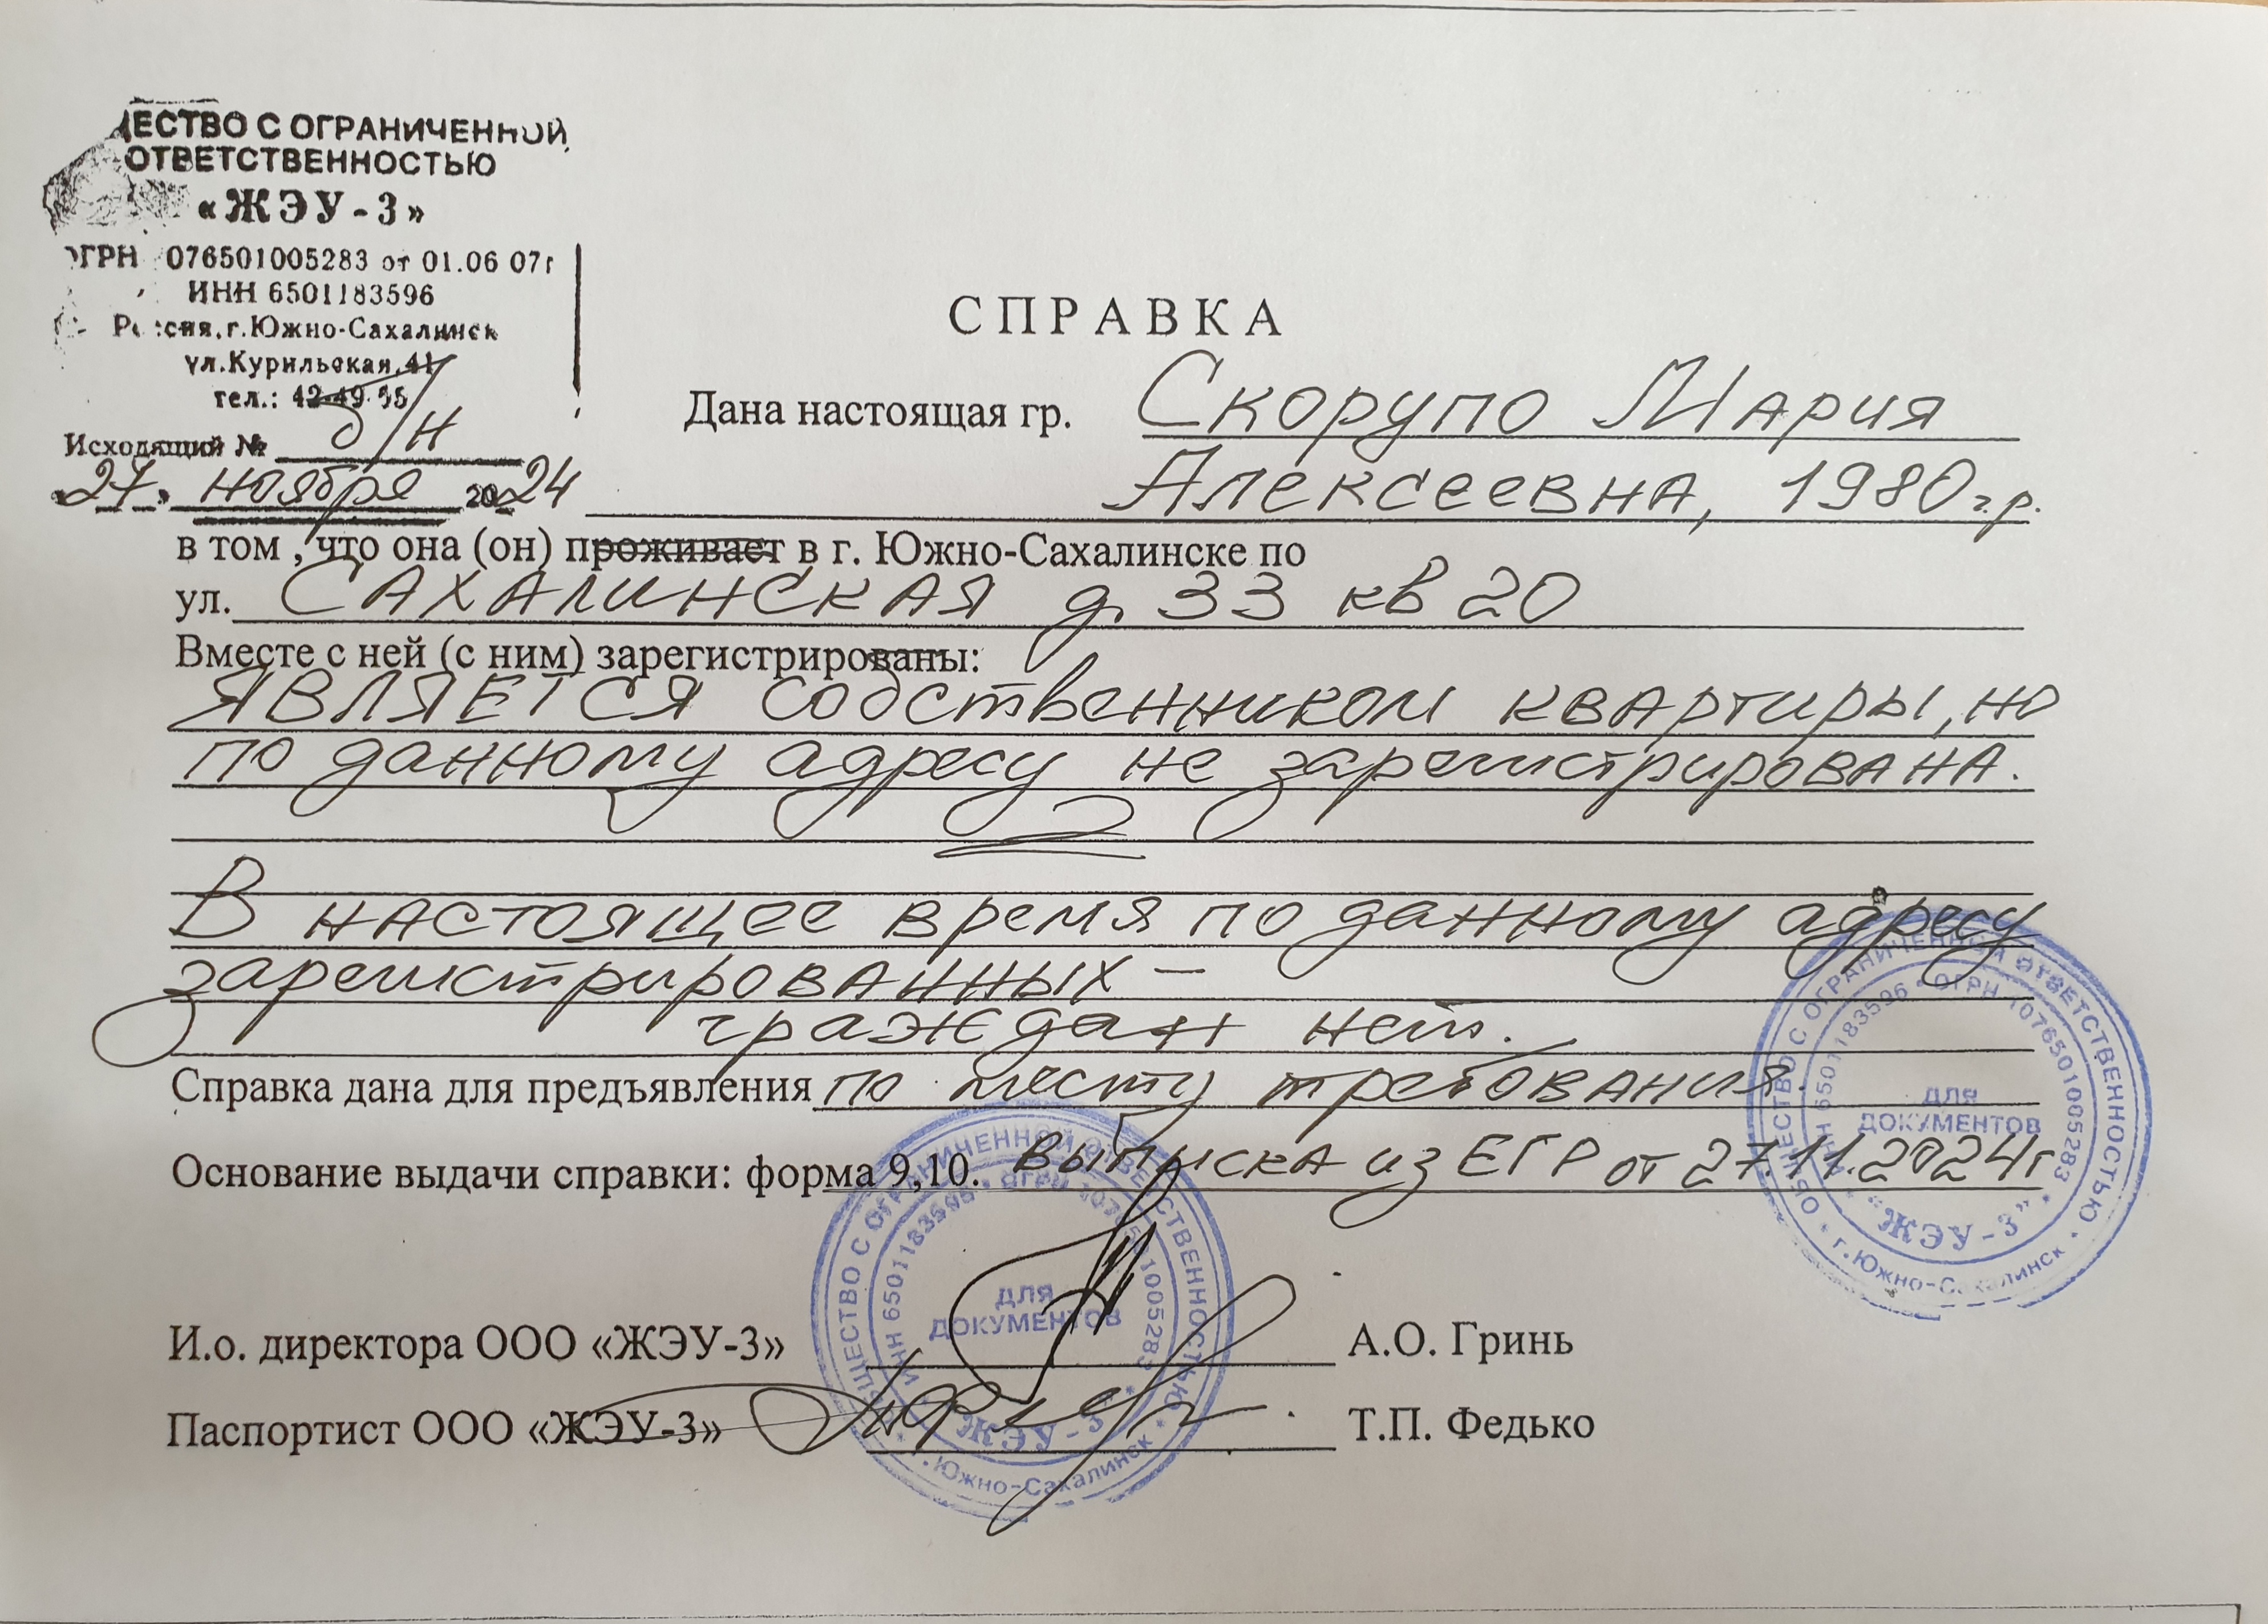 ЕСТВО С ОГРАНИЧЕННОЙ
ОТВЕТСТВЕННОСТЬЮ
«ЖЭУ-3»
ОГРН 076501005283 от 01.06 07г
ИНН 6501183596
Россия, г.Южно-Сахалинск
ул.Курильская,41
тел.: 42-49-55
Исходящий № б/н
«27» ноября 2024
СПРАВКА
Дана настоящая гр. Скорупо Мария
Алексеевна, 1980г.р.
в том , что она (он) проживает в г. Южно-Сахалинске по
ул. Сахалинская д. 33 кв 20
Вместе с ней (с ним) зарегистрированы:
является собственником квартиры, но
по данному адресу не зарегистрирована.
В настоящее время по данному адресу
зарегистрированных –
граждан нет.
Справка дана для предъявления по месту требования.
Основание выдачи справки: форма 9,10. Выписка из ЕГР от 27.11.2024г
И.о. директора ООО «ЖЭУ-3» А.О. Гринь
Паспортист ООО «ЖЭУ-3» Т.П. Федько
ОБЩЕСТВО С ОГРАНИЧЕННОЙ ОТВЕТСТВЕННОСТЬЮ * г.Южно-Сахалинск *
ИНН 6501183596 * ОГРН 1076501005283 *
ДЛЯ
ДОКУМЕНТОВ
"ЖЭУ-3"
ОБЩЕСТВО С ОГРАНИЧЕННОЙ ОТВЕТСТВЕННОСТЬЮ * г.Южно-Сахалинск *
ИНН 6501183596 * ОГРН 1076501005283 *
ДЛЯ
ДОКУМЕНТОВ
"ЖЭУ-3"